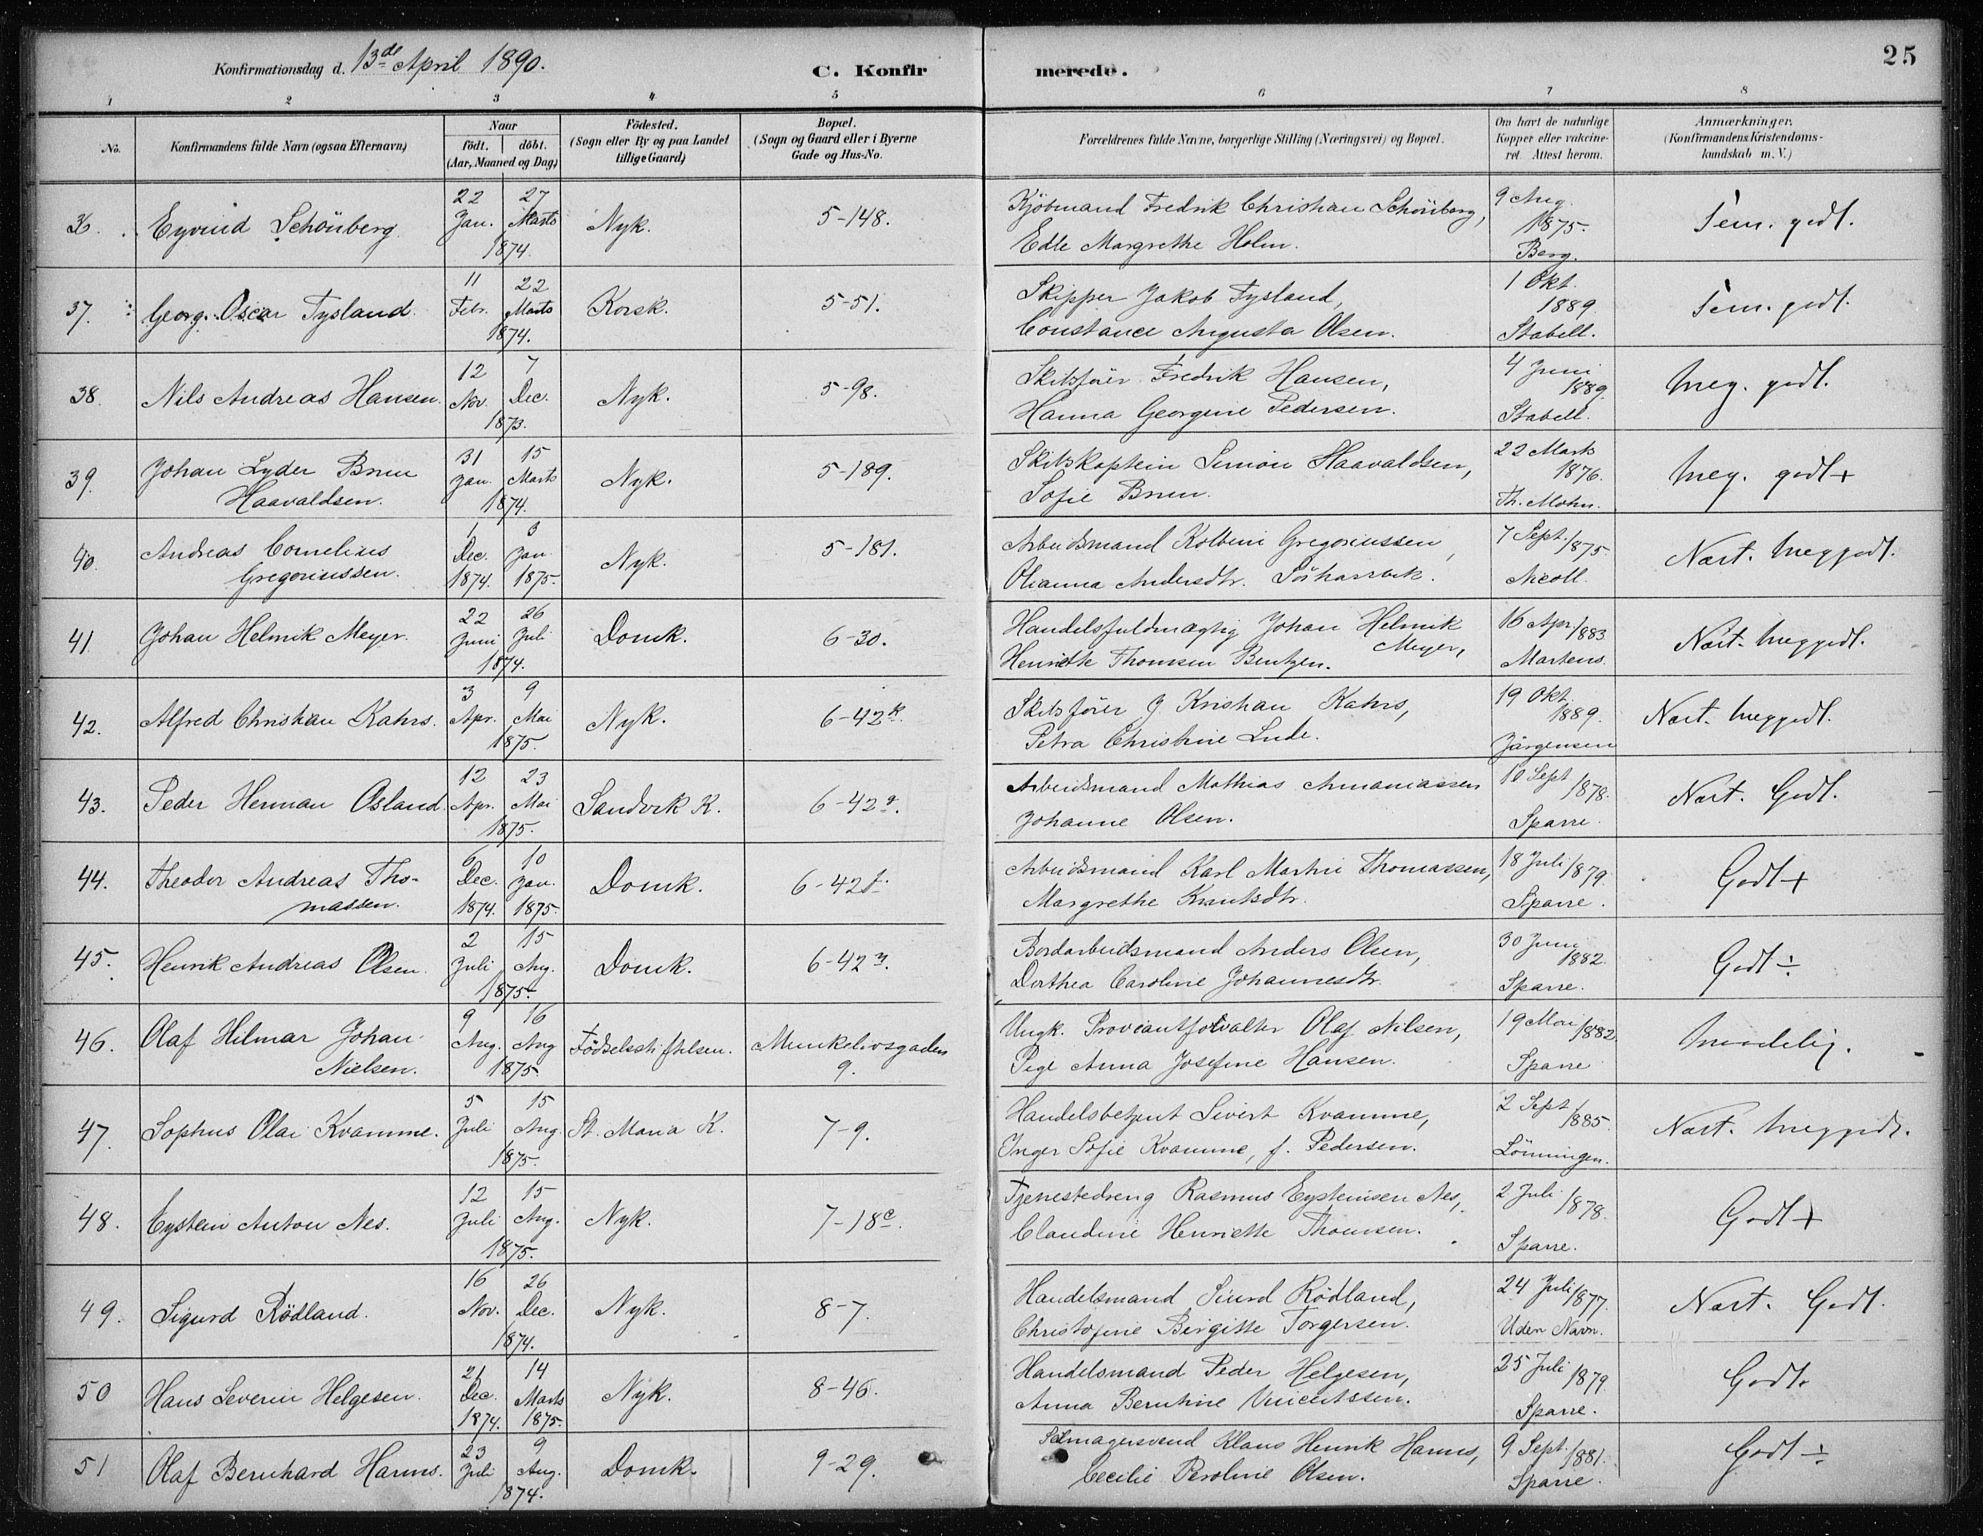 25
Konfirmationsdag d. 13de April 1890.
C. Konfir merede.
1 2 3 4 5 6 7 8
No.
Konfirmandens fulde Navn (ogsaa Efternavn)
Naar
födt. döbt.
(Aar, Maaned og Dag)
Födested.
(Sogn eller By og paa Landet
tillige Gaard)
Bopæl.
(Sogn og Gaard eller i Byerne
Gade og Hus-No.
Forældrenes fulde Navne, borgerlige Stilling (Næringsvei) og Bopæl.
Om havt de naturlige
Kopper eller vakcine-
ret. Attest herom.
Anmærkninger.
(Konfirmandens Kristendoms-
kundskab m. V.)
36. Eyvind Schönberg. 22 Jan. 27 Marts 1874. Nyk. 5-148. Kjöbmand Fredrik Christian Schönberg, 9 Aug. 1875. Tem. godt.
Edle Margrethe Holm. Berg.
37. Georg Oscar Tysland. 11 Febr. 22 Marts 1874. Korsk. 5-51. Skipper Jakob Tysland, 1 Okt. 1889. Tem. godt.
Constance Augusta Olsen. Stabell.
38. Nils Andreas Hansen. 12 Nov. 7 Dec. 1873. Nyk. 5-98. Skibsförer Fredrik Hansen, 4 Juni 1889. Meg. godt.
Hanna Georgine Pedersen. Stabell.
39. Johan Lyder Brun 31 Jan. 15 Marts 1874. Nyk. 5-189. Skibskaptein Simon Haavaldsen, 22 Marts 1876. Meg. godt +
Haavaldsen. Sofie Brun. Th. Mohn.
40. Andreas Cornelius 1 Dec. 1874. 3 Jan. 1875. Nyk. 5-181. Arbeidsmand Kolbein Gregoriussen, 7 Sept. 1875. Næst. Meg godt.
Gregoriussen. Olianna Andersdtr. Nicoll.
41. Johan Helmik Meyer. 22 Juni 26 Juli 1874. Domk. 6-30. Handelsfuldmægtig Johan Helmik 16 Apr. 1883. Næst. Meg godt.
Meyer,
Henriette Thomsen Bentzen. Martens.
42. Alfred Christian Kahrs. 3 Apr. 9 Mai 1875. Nyk. 6-42k. Skibsförer J Kristian Kahrs, 19 Okt. 1889. Næst. Meg godt.
Petra Christine Lude. Jörgensen
43. Peder Herman Osland. 12 Apr. 23 Mai 1875. Sandvik K. 6-42q. Arbeidsmand Mathias Ananiassen 10 Sept 1878. Næst. Godt.
Johanne Olsen. Sparre.
44. Theodor Andreas Tho- 6 Dec. 1874. 10 Jan. 1875. Domk. 6-42t. Arbeidsmand Karl Martin Thomassen, 18 Juli 1879. Godt +
massen. Margrethe Knutsdtr. Sparre.
45. Henrik Andreas Olsen. 2 Juli 15 Aug. 1875. Domk. 6-42y. Bordarbeidsmand Anders Olsen, 30 Juni 1882. Godt ÷
Dorthea Caroline Johannesdtr. Sparre.
46. Olaf Hilmar Johan 9 Aug. 16 Aug 1875. Födselsstiftelsen. Munkelivsgaden 9. Ungk. Proviantforvalter Olaf Nilsen, 19 Mai 1882. Maadelig.
Nielsen. Pige Anna Josefine Hansen. Sparre
47. Sophus Olai Kvamme. 5 Juli 15 Aug. 1875. St. Maria K. 7-9. Handelsbetjent Sivert Kvamme, 2 Sept 1885. Næst. Meg godt.
Inger Sofie Kvamme, f. Pedersen. Lönningen.
48. Eystein Anton Nes. 12 Juli 15 Aug. 1875. Nyk. 7-18c. Tjenestedreng Rasmus Eysteinsen Nes, 2 Juli 1878. Godt +
Claudine Henriette Thomsen. Sparre.
49. Sigurd Rödland. 16 Nov. 26 Dec. 1874. Nyk. 8-7. Handelsmand Siurd Rödland, 24 Juli 1877. Næst. Godt.
Christofine Birgitte Torgersen. Uden Navn.
50 Hans Severin Helgesen. 21 Dec. 1874. 14 Marts 1875. Nyk. 8-46. Handelsmand Peder Helgesen, 25 Juli 1879 Godt.
Anna Berntine Vincentssen. Sparre.
51 Olaf Bernhard Harms. 23 Juli 9 Aug. 1874. Domk. 9-29. Salmagersvend Klaus Henrik Harms, 9 Sept. 1881. Godt ÷
Cecilie Peroline Olsen. Sparre.